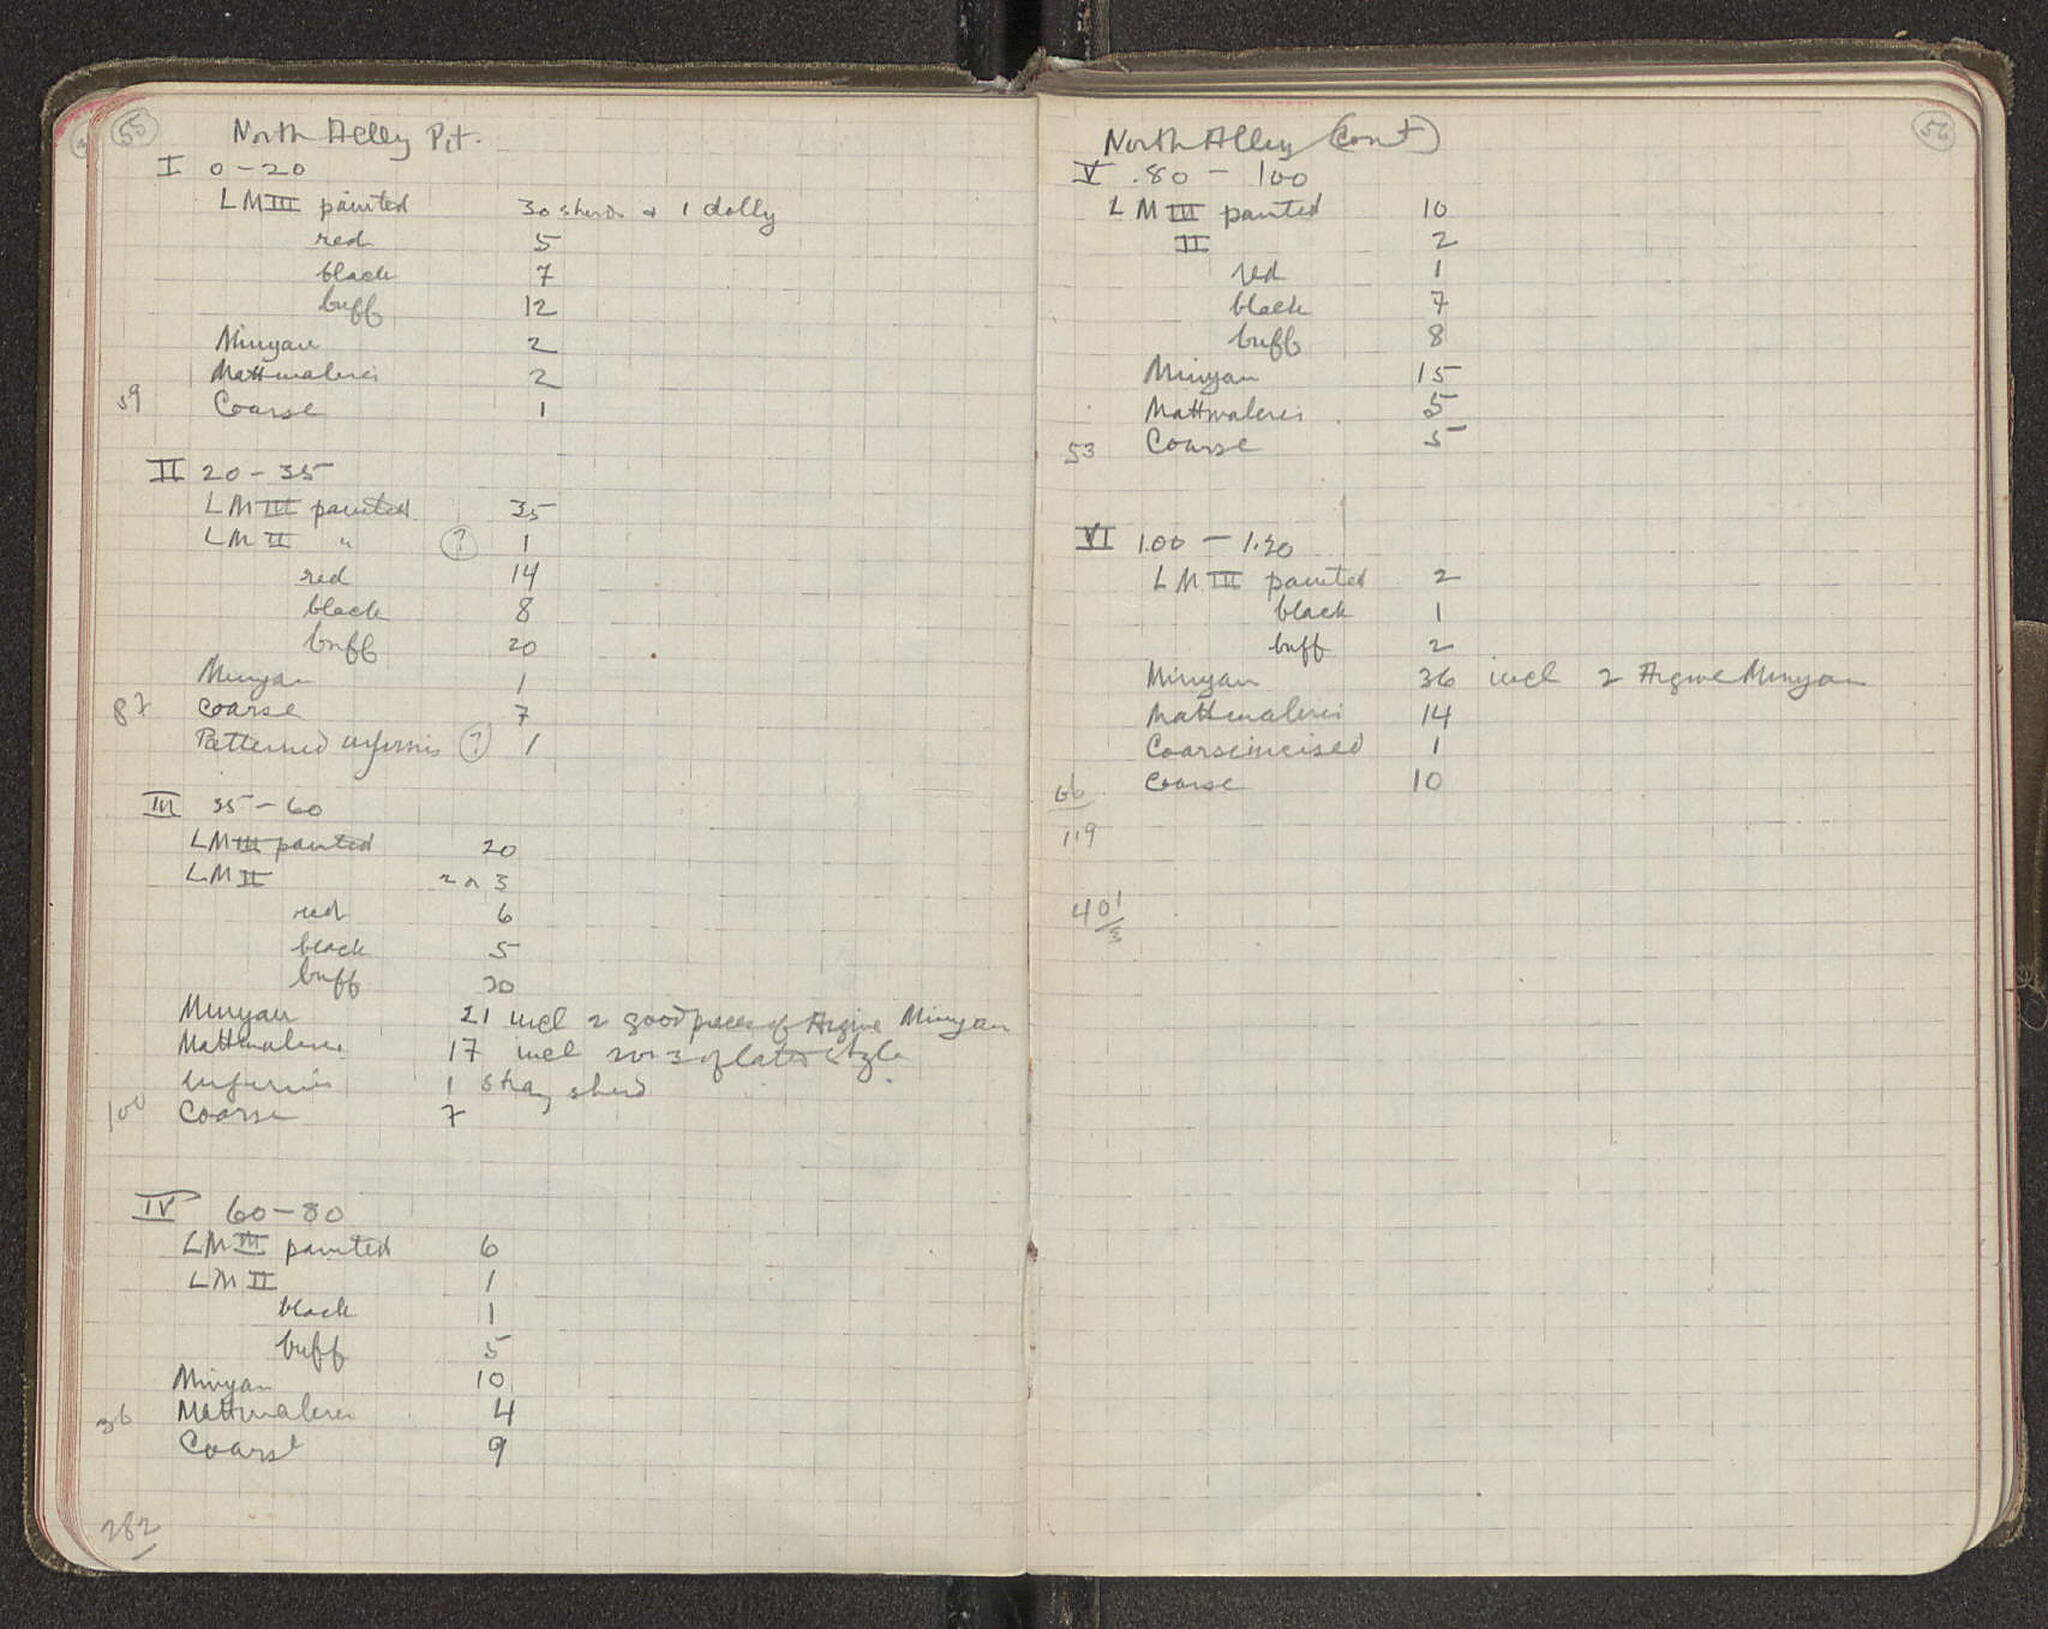 55
North Alley Pit.
I 0-20
LM III painted 30 sherds + 1 dolly
red 5
black 7
buff 12
Minyan 2
Mattmalerei 2
59 Coarse 1
II 20-35
LM III painted 35
LM II " ? 1
red 14
black 8
buff 20
Minyan 1
87 Coarse 7
Patterned urfirnis ? 1
III 35-60
LM III painted 20
LM II 2 or 3
red 6
black 5
buff 20
Minyan 21 incl 2 good pieces of Argive Minyan
Mattmalerei 17 incl 2 or 3 of later style
Urfirnis 1 stray sherd
100 Coarse 7
IV 60-80
LM III painted 6
LM II 1
black 1
buff 5
Minyan 10
36 Mattmalerei 4
Coarse 9
282
56
North Alley (cont)
V .80 - 100
LM III painted 10
II 2
red 1
black 7
buff 8
Minyan 15
Mattmalerei 5
53 Coarse 5
VI 1.00 - 1.20
LM III painted 2
black 1
buff 2
Minyan 36 incl 2 Argive Minyan
Mattmalerei 14
Coarse incised 1
66 Coarse 10
119
401